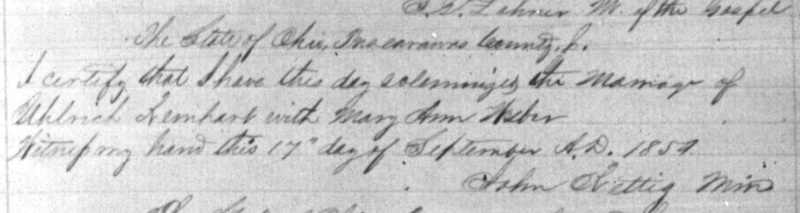 M. of the Gospel
The State of Ohio, Tuscarawas County, S.
I certify that I have this day solemnized the Marriage of
Uhlrich Lemhart with Mary Ann Weber
Witness my hand this 17" day of September A.D. 1854
John Rettig Min